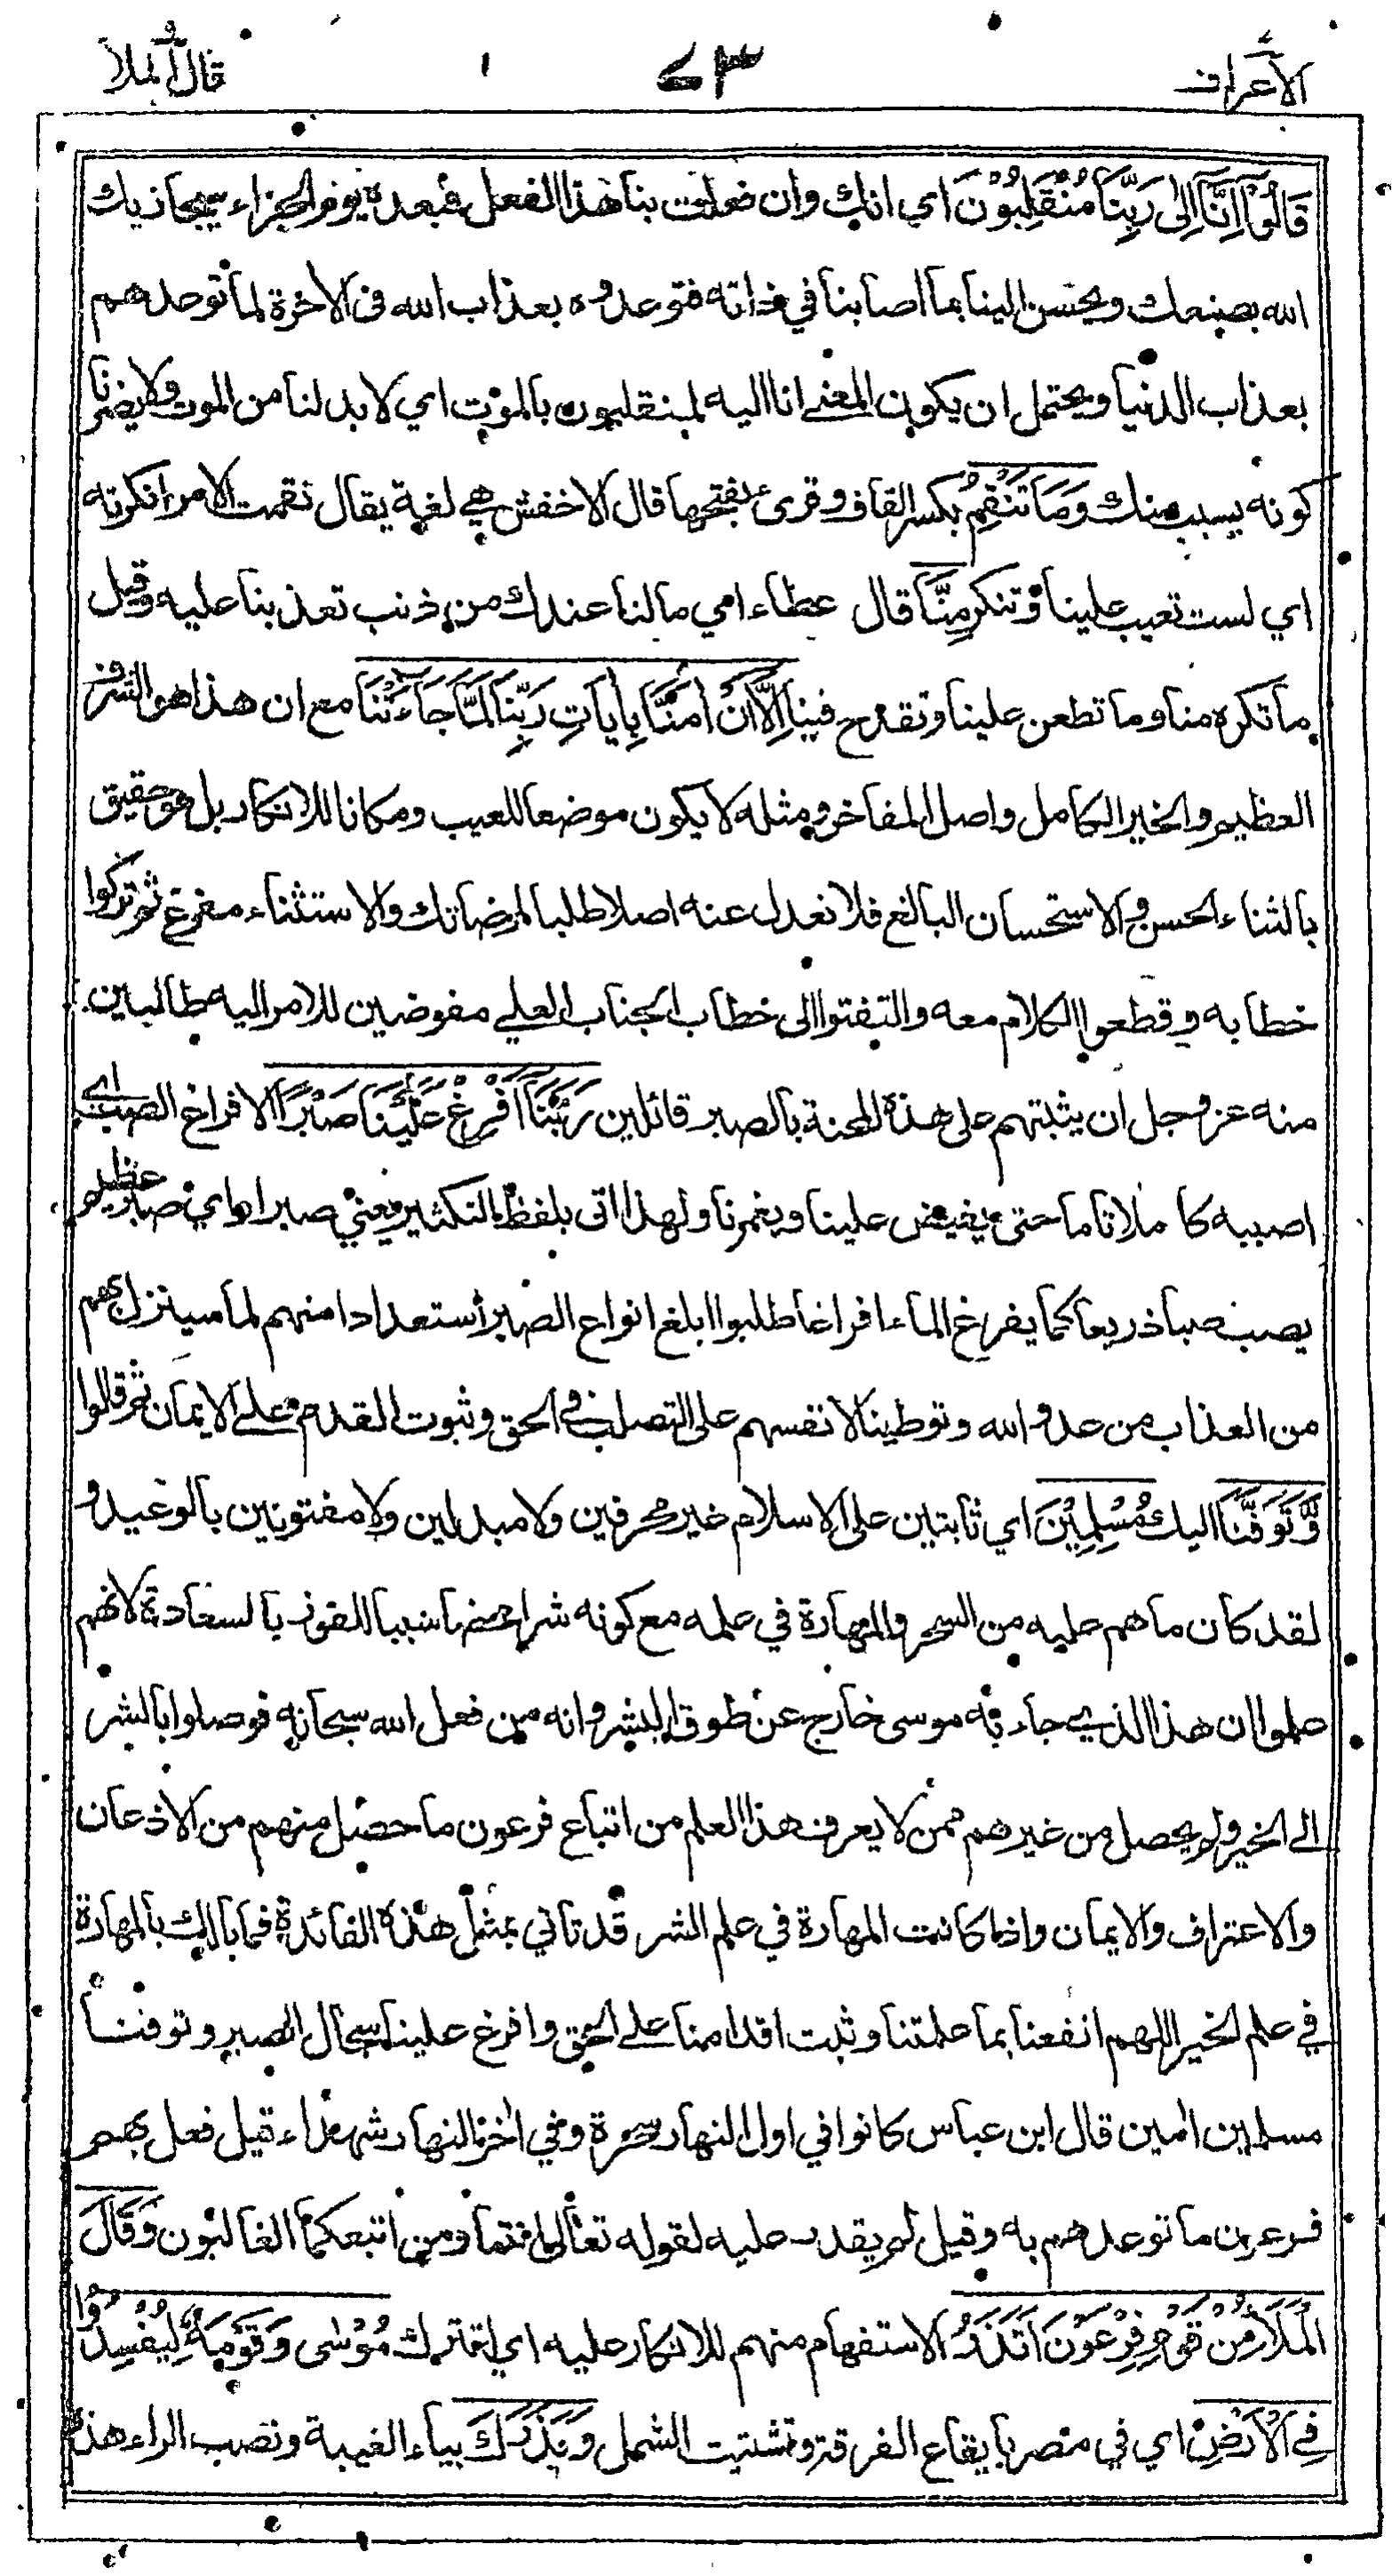 الاعراف ٧٣ قال الملأ
قَالُوْآ اِنَّآ اِلٰى رَبِّنَا مُنْقَلِبُوْنَ اي انك وان فعلت بنا هذا الفعل فبعده يوم الجزاء سيجازيك
الله بصنعك ويحسن الينا بما اصابنا في ذاته فتوعدوه بعذاب الله في الاخرة لما توعدهم
بعذاب الدنيا ويحتمل ان يكون المعنے انا اليه لمنقلبون بالموت اي لا بد لنا من الموت ولا يضرنا
كونه بسبب منك وَمَا تَنْقِمُ بكسر القاف وقرئ بفتحها قال الاخفش هي لغة يقال نقمت الامر انكرته
اي لست تعيب علينا وتنكر مِنَّآ قال عطاء اي ما لنا عندك من ذنب تعذبنا عليه وقيل
ما تكره منا وما تطعن علينا وتقدح فينا اِلَّآ اَنْ اٰمَنَّا بِاٰيَاتِ رَبِّنَا لَمَّا جَآءَتْنَا مع ان هذا هو الشرف
العظيم والخير الكامل واصل المفاخر ومثله لا يكون موضعا للعيب ومكانا للانكار بل هو حقيق
بالثناء الحسن والاستحسان البالغ فلا نعدل عنه اصلا طلبا لمرضاتك والاستثناء مفرغ ثم تركوا
خطابه وقطعوا الكلام معه والتفتوا الى خطاب الجناب العلي مفوضين للامر اليه طالبين
منه عز وجل ان يثبتهم على هذه المحنة بالصبر قائلين رَبَّنَآ اَفْرِغْ عَلَيْنَا صَبْرًا الافراغ الصب اي
اصببه كاملا تاما حتى يفيض علينا ويغمرنا ولهذا اتى بلفظ التنكثير يعني صبرا واي صبر عظيم
يصب صبا ذريعا كما يفرغ الماء افراغا طلبوا ابلغ انواع الصبر استعدادا منهم لما سينزل بهم
من العذاب من عدو الله وتوطينا لانفسهم على التصلب في الحق وثبوت القدم على الايمان ثم قالوا
وَّتَوَفَّنَا اليك مُسْلِمِيْنَ اي ثابتين على الاسلام غير محرفين ولا مبدلين ولا مفتونين بالوعيد و
لقد كان ما هم عليه من السحر والمهارة في علمه مع كونه شرا محضا سببا للفوز بالسعادة لانهم
علموا ان هذا الذي جاء به موسى خارج عن طوق البشر وانه من فعل الله سبحانه فوصلوا بالشر
الى الخير ولم يحصل من غيرهم ممن لا يعرف هذا العلم من اتباع فرعون ما حصل منهم من الاذعان
والاعتراف والايمان واذا كانت المهارة في علم الشر قد تاتي بمثل هذه الفائدة فما بالك بالمهارة
في علم الخير اللهم انفعنا بما علمتنا وثبت اقدامنا على الحق وافرغ علينا سجال الصبر وتوفنا
مسلمين امين قال ابن عباس كانوا في اول النهار سحرة وفي اخر النهار شهداء قيل فعل بهم
فرعون ما توعدهم به وقيل لم يقدر عليه لقوله تعالى انتما ومن اتبعكما الغالبون وَقَالَ
الْمَلَأُ مِنْ قَوْمِ فِرْعَوْنَ اَتَذَرُ الاستفهام منهم للانكار عليه اي اتترك مُوْسٰى وَقَوْمَهٗ لِيُفْسِدُوْا
فِي الْاَرْضِ اي في مصر بايقاع الفرقة وتشتيت الشمل وَيَذَرَكَ بياء الغيبة ونصب الراء هذه